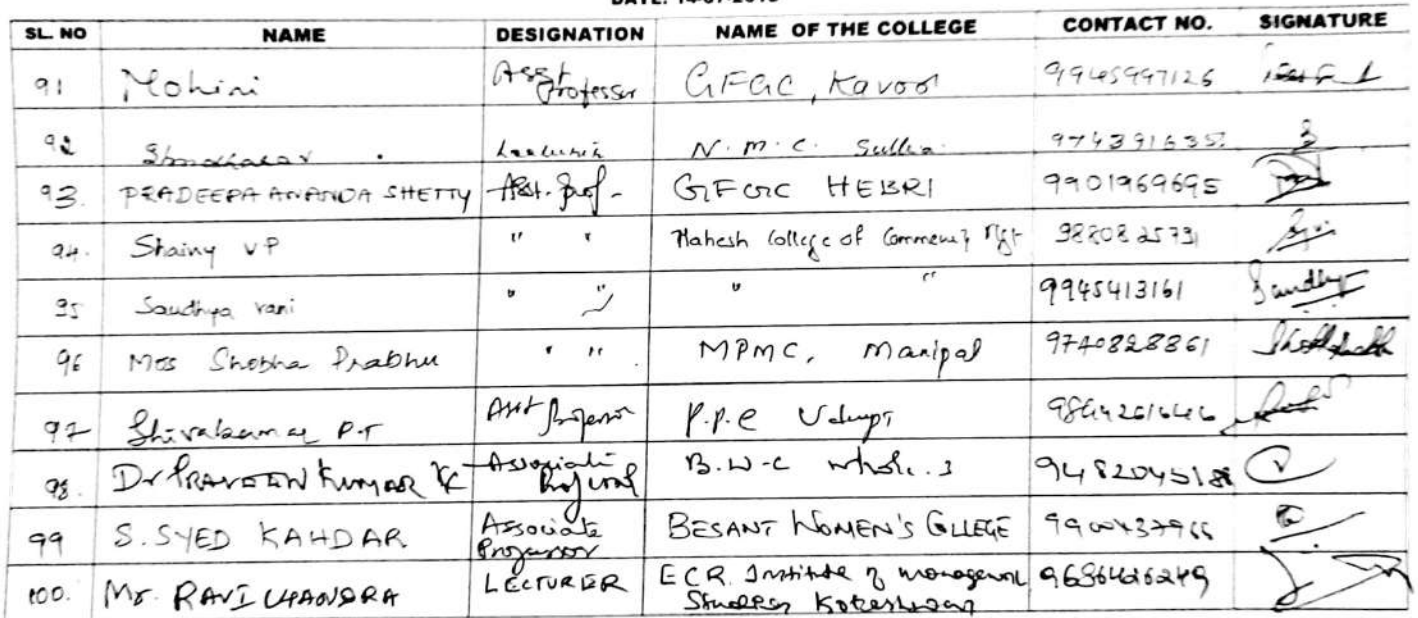 SL. NO NAME DESIGNATION NAME OF THE COLLEGE CONTACT NO. SIGNATURE
91 Mohini Asst Professor GFGC, Kavoor 9945997126
92 N.M.C. Sullia
93. PRADEEPA ANANDA SHETTY Asst. Prof- GFGC HEBRI 9901969695
94. Shainy VP " " Mahesh College of Commerce & Mgt 9880825731
95 Sandhya rani " " " " 9945413161 Sandhya
96 Mrs Shobha Prabhu " " MPMC, Manipal 9740828861
97 Shivakumar P.T Asst Professor P.P.C Udupi
98. Dr PRAVEEN KUMAR K C Associate Professor B.W.C
99 S. SYED KAHDAR Associate Professor BESANT WOMEN'S COLLEGE
100. Mr. RAVICHANDRA LECTURER E.C.R. Institute of management Studies Koteshwar